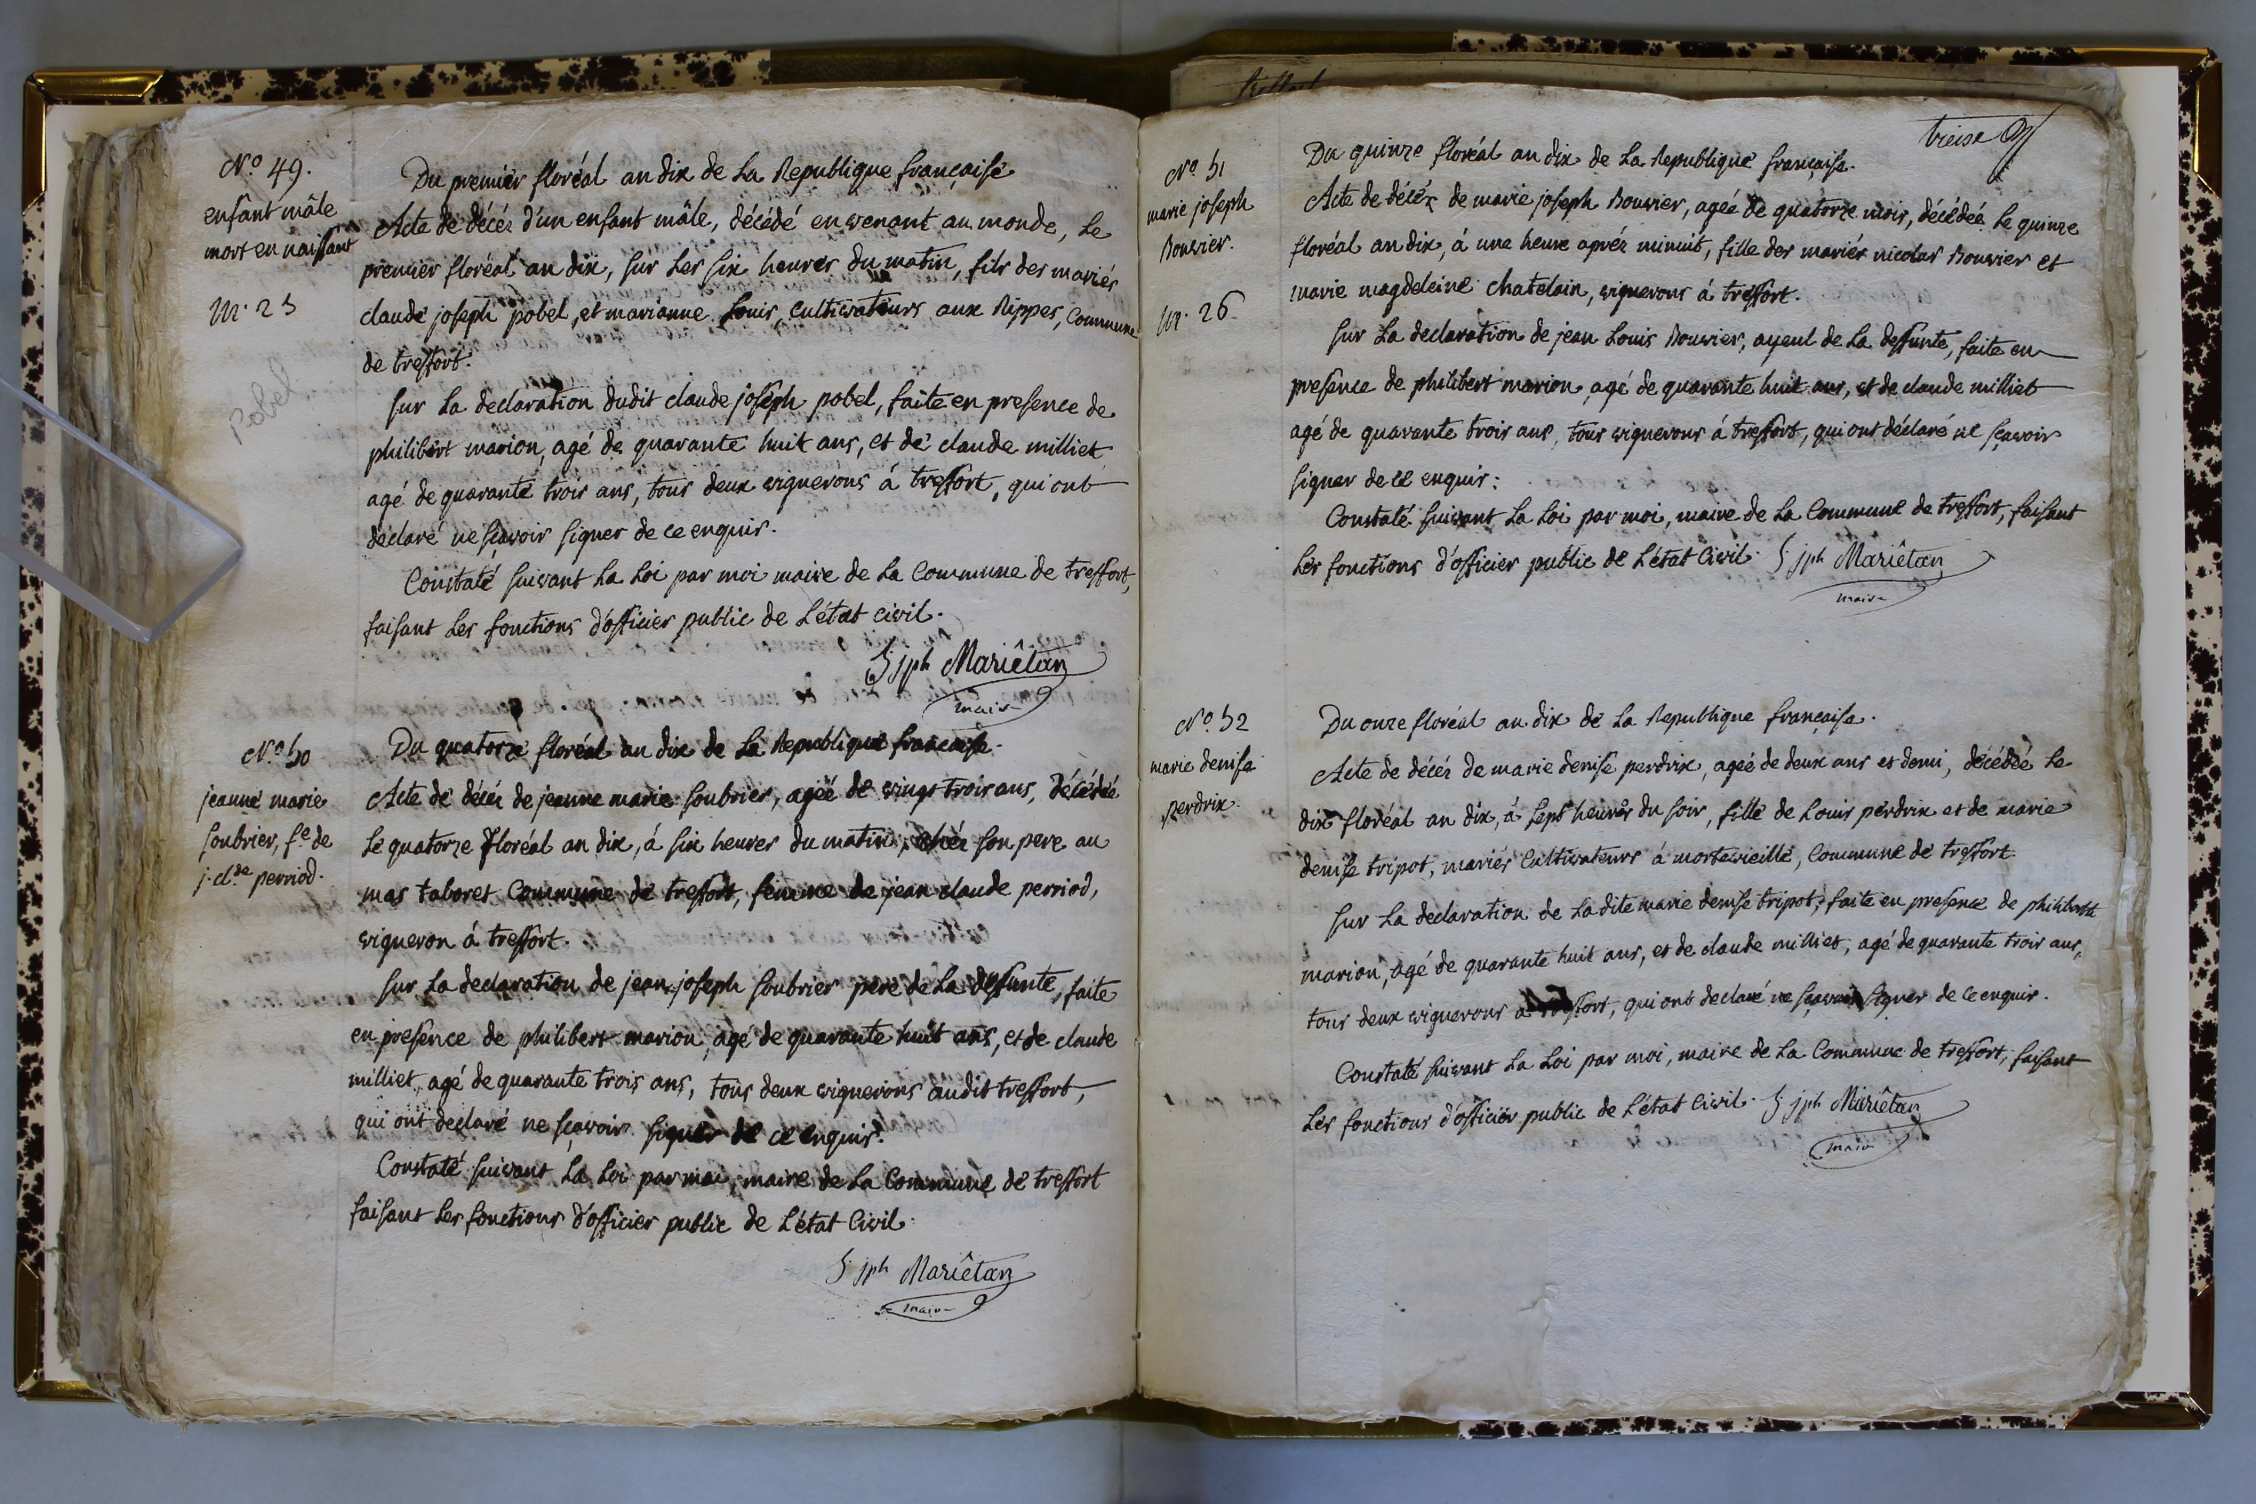 N.o 49.
enfant mâle
mort en naissant
m. 25
Pobel
Du premier floréal an dix de la Republique française
Acte de décéz d'un enfant mâle, décédé en venant au monde, le
premier floréal an dix, sur les six heures du matin, fils des mariés
claude joseph pobel, et marianne Louis, cultivateurs aux Rippes, Commune
de treffort.
sur la declaration dudit claude joseph pobel, faite en presence de
philibert marion, agé de quarante huit ans, et de claude milliet
agé de quarante trois ans, tous deux vignerons á treffort, qui ont
déclaré ne sçavoir signer de ce enquis.
Constaté suivant la Loi par moi maire de la Commune de treffort,
faisant les fonctions d'officier public de L'état civil.
jph Mariêtan
maire
N.o 50
jeanne marie
soubrier, f.e de
j. cl.de perriod.
Du quatorze floréal an dix de la Republique française.
Acte de décéz de jeanne marie soubrier, agéé de vingt trois ans, décédéé
le quatorze floréal an dix, á six heures du matin, chéz son pere au
mas taboret Commune de treffort, femme de jean claude perriod,
vigneron á treffort.
sur la declaration de jean joseph soubrier pere de la deffunte, faite
en presence de philibert marion, agé de quarante huit ans, et de claude
milliet, agé de quarante trois ans, tous deux vignerons audit treffort,
qui ont declaré ne sçavoir signer de ce enquis.
Constaté suivant la Loi par moi, maire de la Commune de treffort
faisant les fonctions d'officier public de L'état Civil.
jph Mariêtan
maire
treize
N.o 51
marie joseph
Bouvier.
m. 26
Du quinze floréal an dix de la Republique française.
Acte de décéz de marie joseph Bouvier, agéé de quatorze mois, décédéé le quinze
floréal an dix, á une heure aprés minuit, fille des mariés nicolas Bouvier et
marie magdeleine chatelain, vignerons á treffort.
sur la declaration de jean Louis Bouvier, ayeul de la deffunte, faite en
presence de philibert marion, agé de quarante huit ans, et de claude milliet
agé de quarante trois ans, tous vignerons á treffort, qui ont déclaré ne sçavoir
signer de ce enquis:
Constaté suivant la Loi par moi, maire de la Commune de treffort, faisant
les fonctions d'officier public de L'état Civil. jph Mariêtan
maire
N.o 52
marie denise
perdrix.
Du onze floréal an dix de la Republique française.
Acte de décéz de marie denise perdrix, agéé de deux ans et demi, décédéé le
dix floréal an dix, á sept heures du soir, fille de Louis perdrix et de marie
denise tripot, mariés Cultivateurs á mortevieille, Commune de treffort
sur la declaration de ladite marie denise tripot, faite en presence de philibert
marion, agé de quarante huit ans, et de claude milliet, agé de quarante trois ans,
tous deux vignerons á treffort, qui ont declaré ne sçavoir signer de ce enquis.
Constaté suivant la Loi par moi, maire de la Commune de treffort, faisant
les fonctions d'officier public de L'état Civil. jph Mariêtan
maire